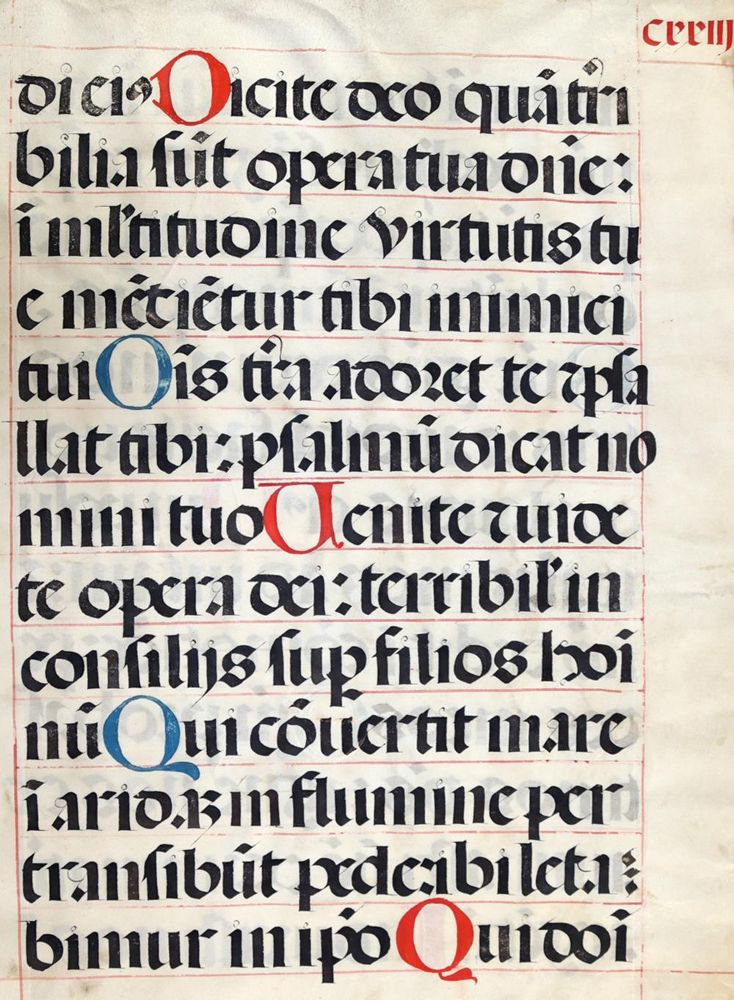 cxxiij
dici9 Dicite deo quã tr̃i
bilia sũt opera tua dñe:
ĩ ml'titudine virtutis tu
e mẽtiẽtur tibi inimici
tui Oĩs tr̃a adoret te ⁊ psa
llat tibi: psalmũ dicat no
mini tuo Uenite ⁊ uide
te opera dei: terribil' in
consilijs sup̱ filios hoĩ
nũ Qui cõuertit mare
ĩ aridaꝫ in flumine per
transibũt pede: ibi leta:
bimur in ip̃o Qui doĩ